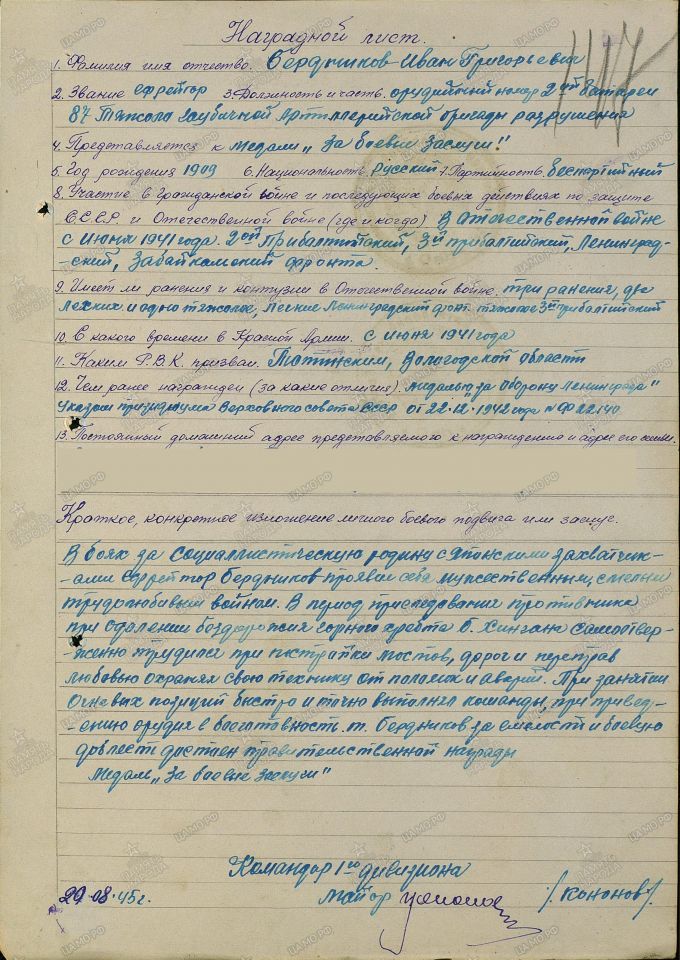 Наградной лист.
1. Фамилия имя отчество. Бердников Иван Григорьевич
2. Звание ефрейтор 3. Должность и часть орудийный номер 2ой батареи
87 Тяжело Гаубичной Артиллерийской бригады разрушения
4. Представляется к медали „За боевые Заслуги!"
5. Год рождения 1909 6. Национальность русский 7. Партийность беспартийный
8. Участие в гражданской войне и последующих боевых действиях по защите
С.С.С.Р. и Отечественной войне (где и когда) В Отечественной войне
с июня 1941 года. 2ой Прибалтийский, 3й прибалтийский, Ленинград-
-ский, Забайкальский фронта.
9. Имеет ли ранения и контузии в Отечественной войне. три ранения, два
легких и одно тяжолое, легкие Ленинградский фронт тяжолое 3й прибалтийский
10. С какого времени в Красной Армии. с июня 1941 года
11. Каким Р.В.К. призван. Тотьмским, Вологодской области
12. Чем ранее награжден (за какие отличия). медалью „за Оборону Ленинграда"
Указом призидиума Верховного совета СССР от 22.12.1942 года № Ф 22140
13. Постоянный домашний адрес представляемого к награждению и адрес его семьи.
Краткое, конкретное изложение личного боевого подвига или заслуг.
В боях за социаллистическую родину с Японскими захватчик-
-ами Ефрейтор Бердников проявил себя мужественным, смелым
трудолюбивым войном. В период приследования противника
при одалении бездорожия горного хребта б. Хингана самоотвер-
-женно трудился при постройки мостов, дорог и переправ
любовью охранял свою технику от поломок и аварий. При занятии
огневых позиций быстро и точно выполнял команды, при привед-
-ению орудия в боеготовность. т. Бердников за смелость и боевую
доблесть достоен правительственной награды
Медаль „За боевые заслуги"
Командор 1го дивизиона
29.08.45г. майор /Кононов/.
ЦАМО.РФ